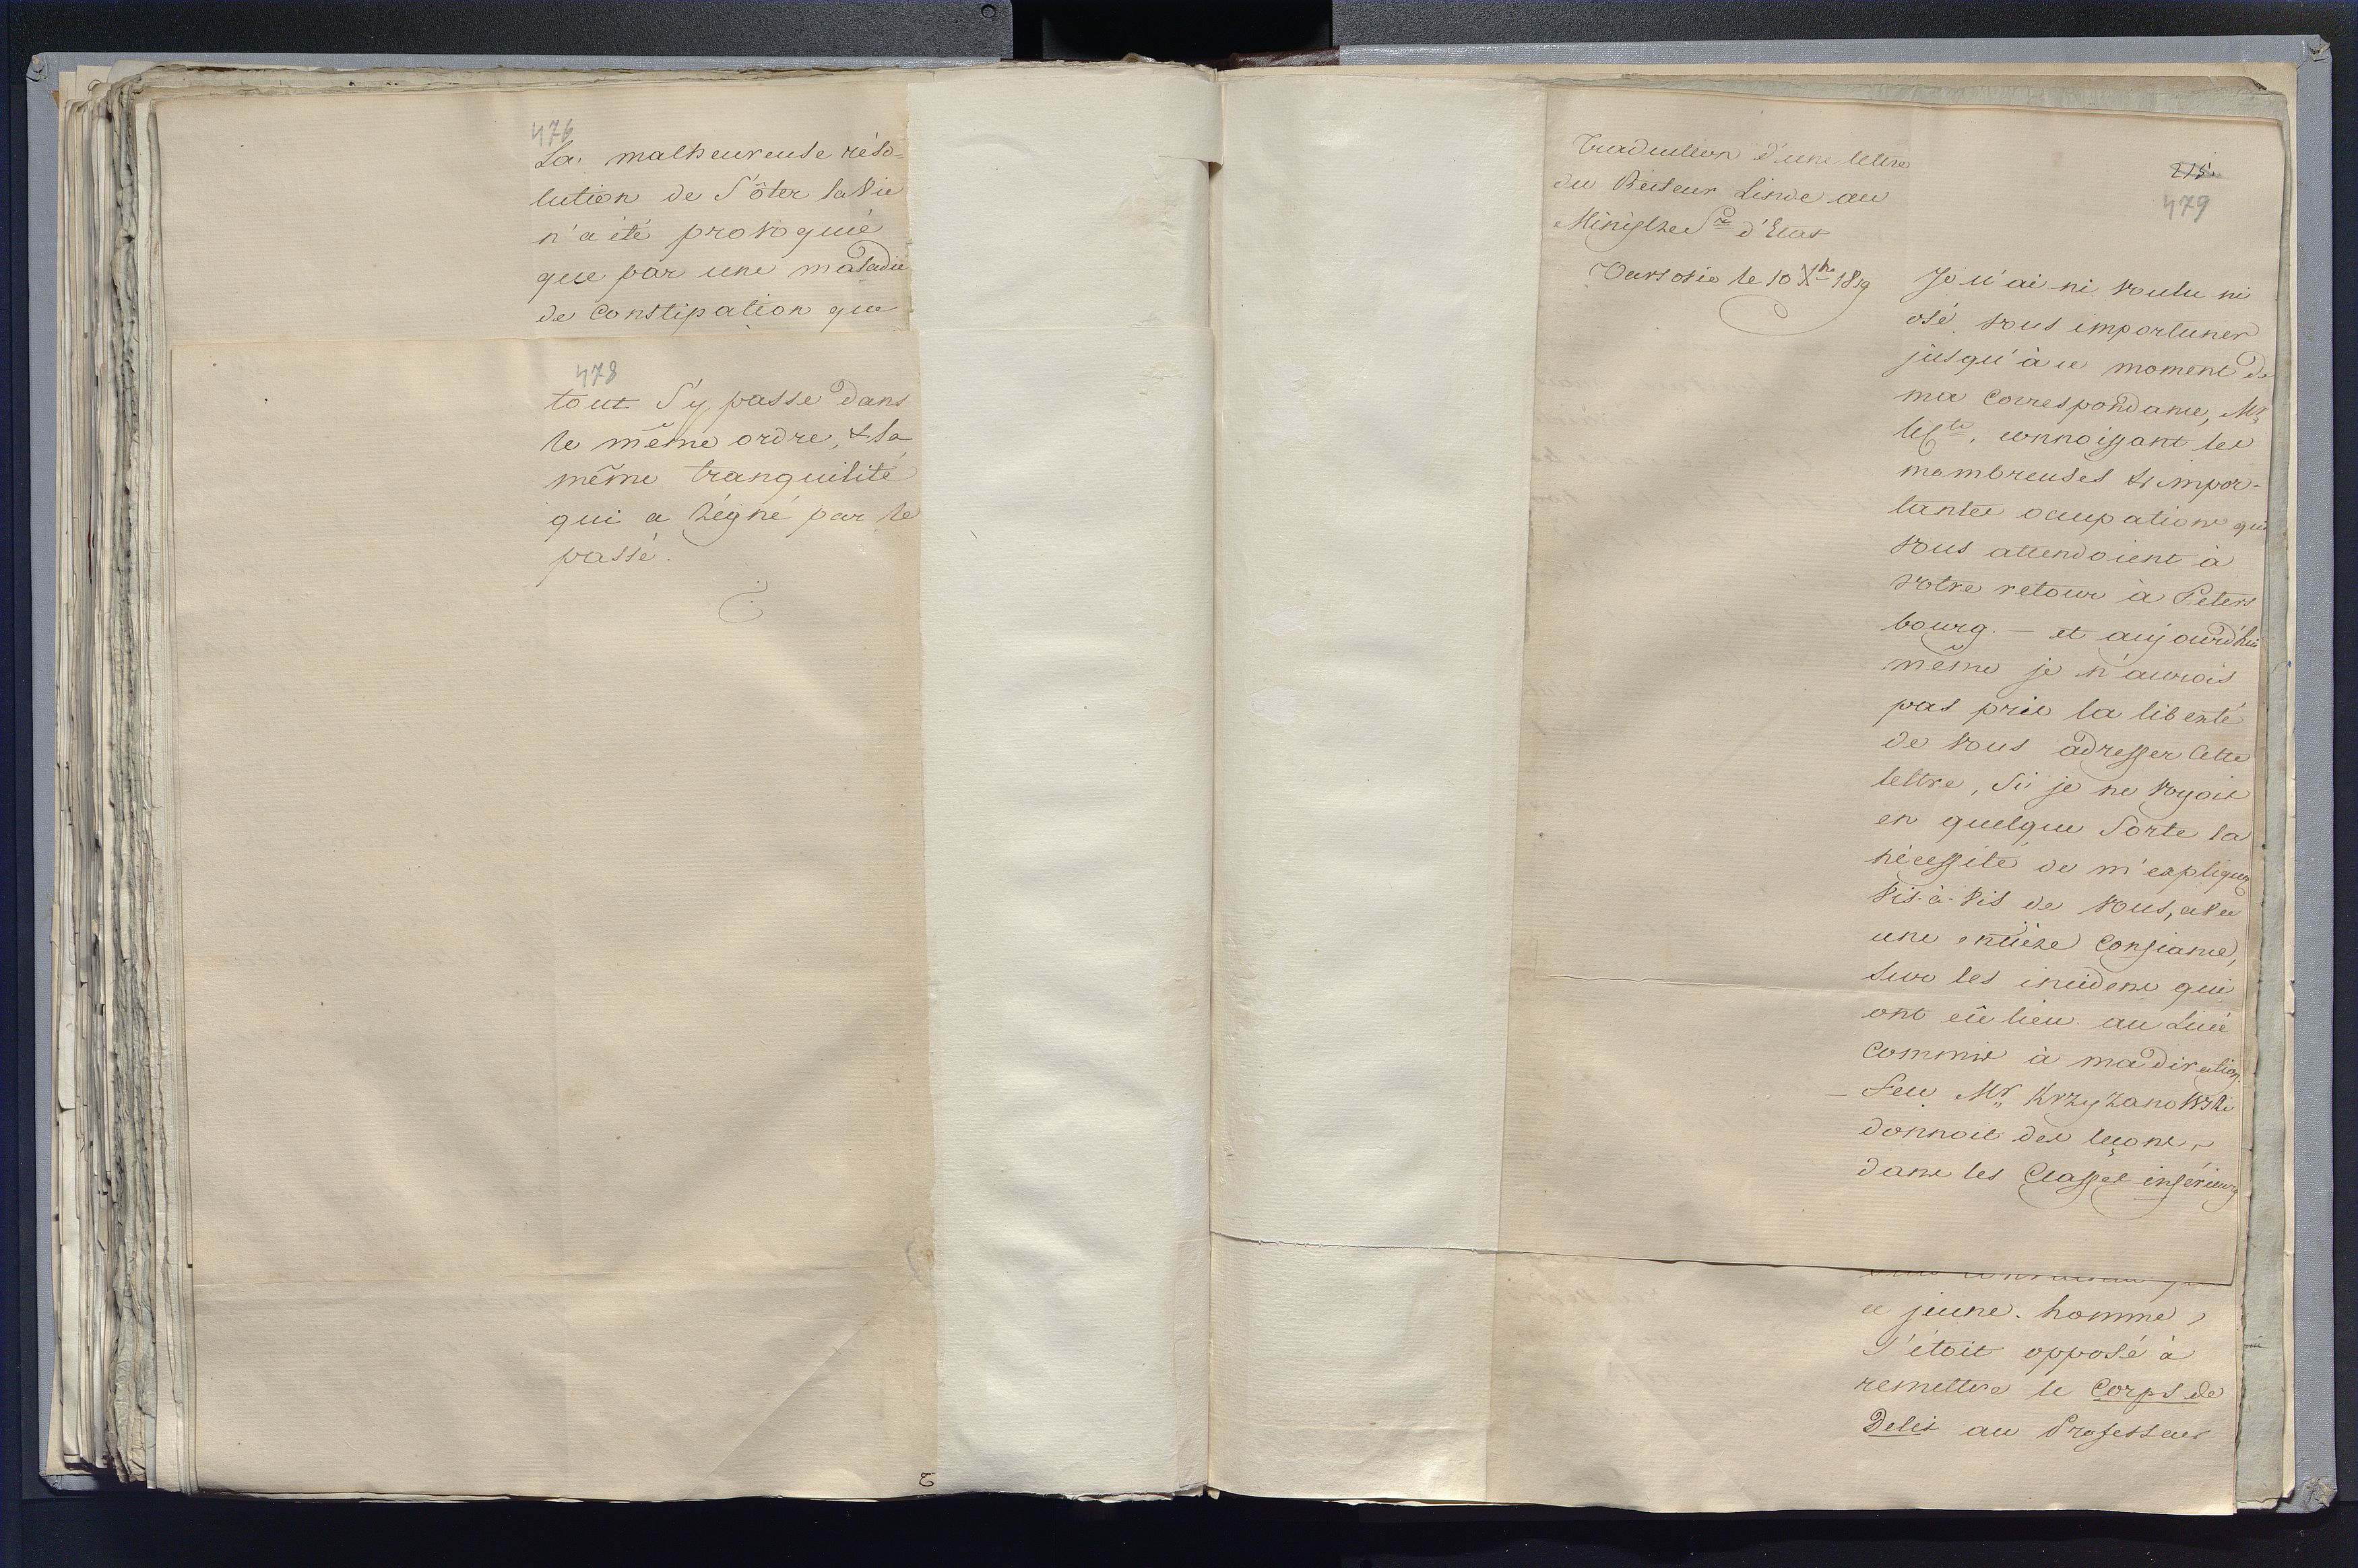 476
La malheureuse réso-
lution de S'ôter la Vie
n'a été provoquée
que par une maladie
de Constipation que
478
tout S'y passe dans
le même ordre, & la
même tranquilité
qui a régné par le
passé.
215.
479
Traduction d'une lettre
du Recteur Linde au
Ministre Sre d'Etat
Varsovie le 10 Xbre 1819
Je n'ai ni voulu ni
osé vous importuner
jusqu'à ce moment de
ma Correspondance, Mr.
le Cte, connoissant les
nombreuses & impor-
tantes occupations qui
vous attendoient à
votre retour à Peters
bourg. — et aujourd'hui
même je n'aurois
pas pris la liberté
de vous adresser Cette
lettre, Si je ne voyois
en quelque Sorte la
nécessité de m'expliquer
Vis-à-Vis de vous, avec
une entière Confiance,
Sur les incidens qui
ont eû lieu au Licé
Commis à ma direction.
— Feu Mr. Krzyzanowski
donnoit des leçons,
dans les Classes inférieures
ce jeune homme,
S'étoit opposé à
remettre le Corps de
Delit au Professeur
2